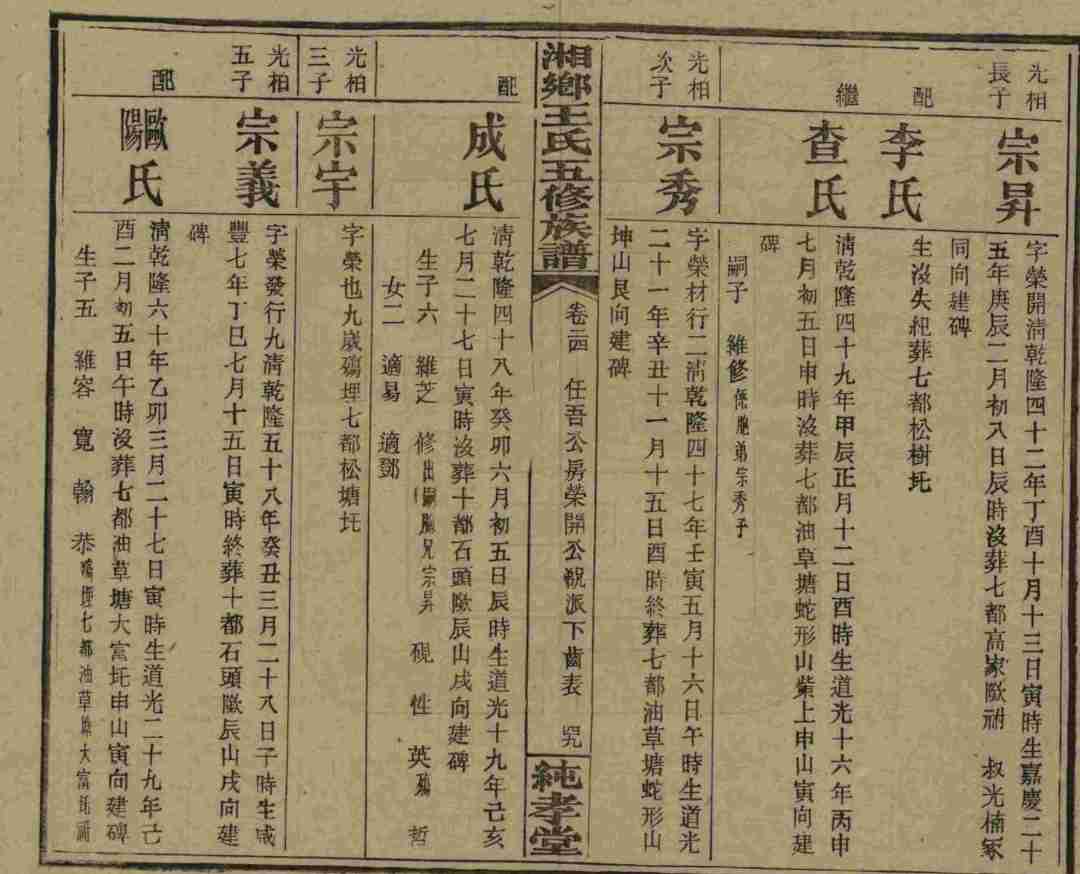 光柏
長子
宗昇
字榮開清乾隆四十二年丁酉十月十三日寅時生嘉慶二十
五年庚辰二月初八日辰時沒葬七都高家𡎺祔 叔光楠冢
同向建碑
配
李氏
生沒失紀葬七都松樹圫
繼
查氏
清乾隆四十九年甲辰正月十二日酉時生道光十六年丙申
七月初五日申時沒葬七都油草塘蛇形山柴上申山寅向建
碑
嗣子 維修係胞弟宗秀子
光柏
次子
宗秀
字榮材行二清乾隆四十七年壬寅五月十六日午時生道光
二十一年辛丑十一月十五日酉時終葬七都油草塘蛇形山
坤山艮向建碑
湘鄉王氏五修族譜
卷 任吾公房榮開公 派下齒表
純孝堂
配
成氏
清乾隆四十八年癸卯六月初五日辰時生道光十九年己亥
七月二十七日寅時沒葬十都石頭 辰山戌向建碑
生子六 維芝 修出嗣胞兄宗昇 硯 性 英殤 哲
女二 適易 適鄧
光柏
三子
宗宇
字榮也九歲殤埋七都松塘圫
光柏
五子
宗義
字榮發行九清乾隆五十八年癸丑三月二十八日子時生咸
豐七年丁巳七月十五日寅時終葬十都石頭 辰山戌向建
碑
配
歐陽氏
清乾隆六十年乙卯三月二十七日寅時生道光二十九年己
酉二月初五日午時沒葬七都油草塘大富圫申山寅向建碑
生子五 維容 寬 翰 恭殤埋七都油草塘大富圫